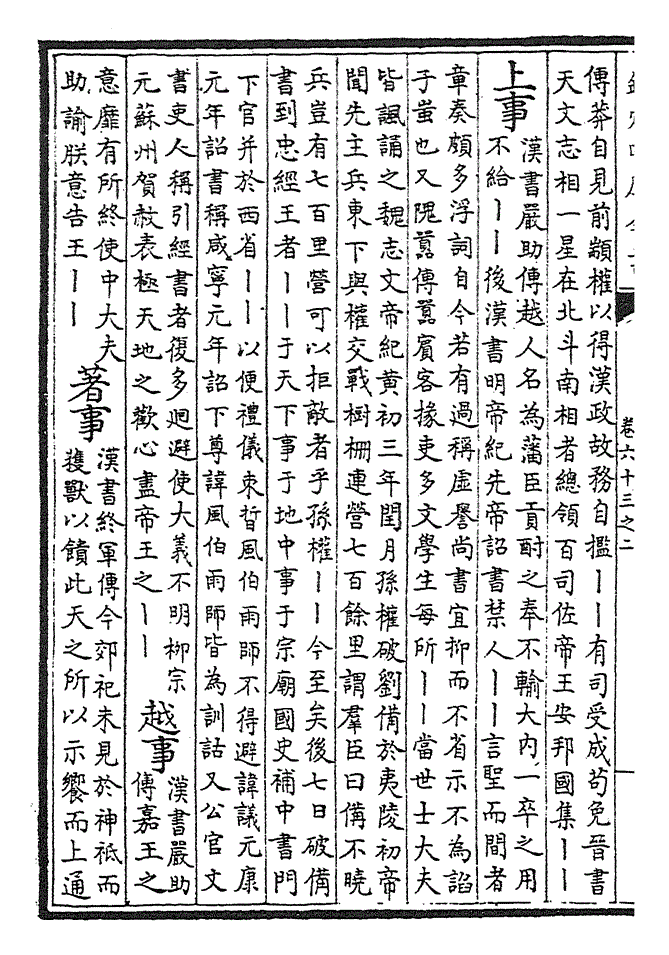 卷六十三之二
傳莽自見前顓權以得漢政故務自攬丨丨有司受成苟免晉書
天文志相一星在北斗南相者總領百司佐帝王安邦國集丨丨
上事
漢書嚴助傳越人名為藩臣貢酎之奉不輸大內一卒之用
不給丨丨後漢書明帝紀先帝詔書禁人丨丨言聖而間者
章奏頗多浮詞自今若有過稱虛譽尚書宜抑而不省示不為諂
子蚩也又隗囂傳囂賓客掾吏多文學生每所丨丨當世士大夫
皆諷誦之魏志文帝紀黃初三年閏月孫權破劉備於夷陵初帝
聞先主兵東下與權交戰樹柵連營七百餘里謂羣臣曰備不曉
兵豈有七百里營可以拒敵者乎孫權丨丨今至矣後七日破備
書到忠經王者丨丨于天下事于地中事于宗廟國史補中書門
下官并於西省丨丨以便禮儀束晳風伯雨師不得避諱議元康
元年詔書稱咸寧元年詔下尊諱風伯雨師皆為訓詁又公官文
書吏人稱引經書者復多迴避使大義不明柳宗
元蘇州賀赦表極天地之歡心盡帝王之丨丨
越事
漢書嚴助
傳嘉王之
意靡有所終使中大夫
助諭朕意告王丨丨
著事
漢書終軍傳今郊祀未見於神祇而
獲獸以饋此天之所以示饗而上通